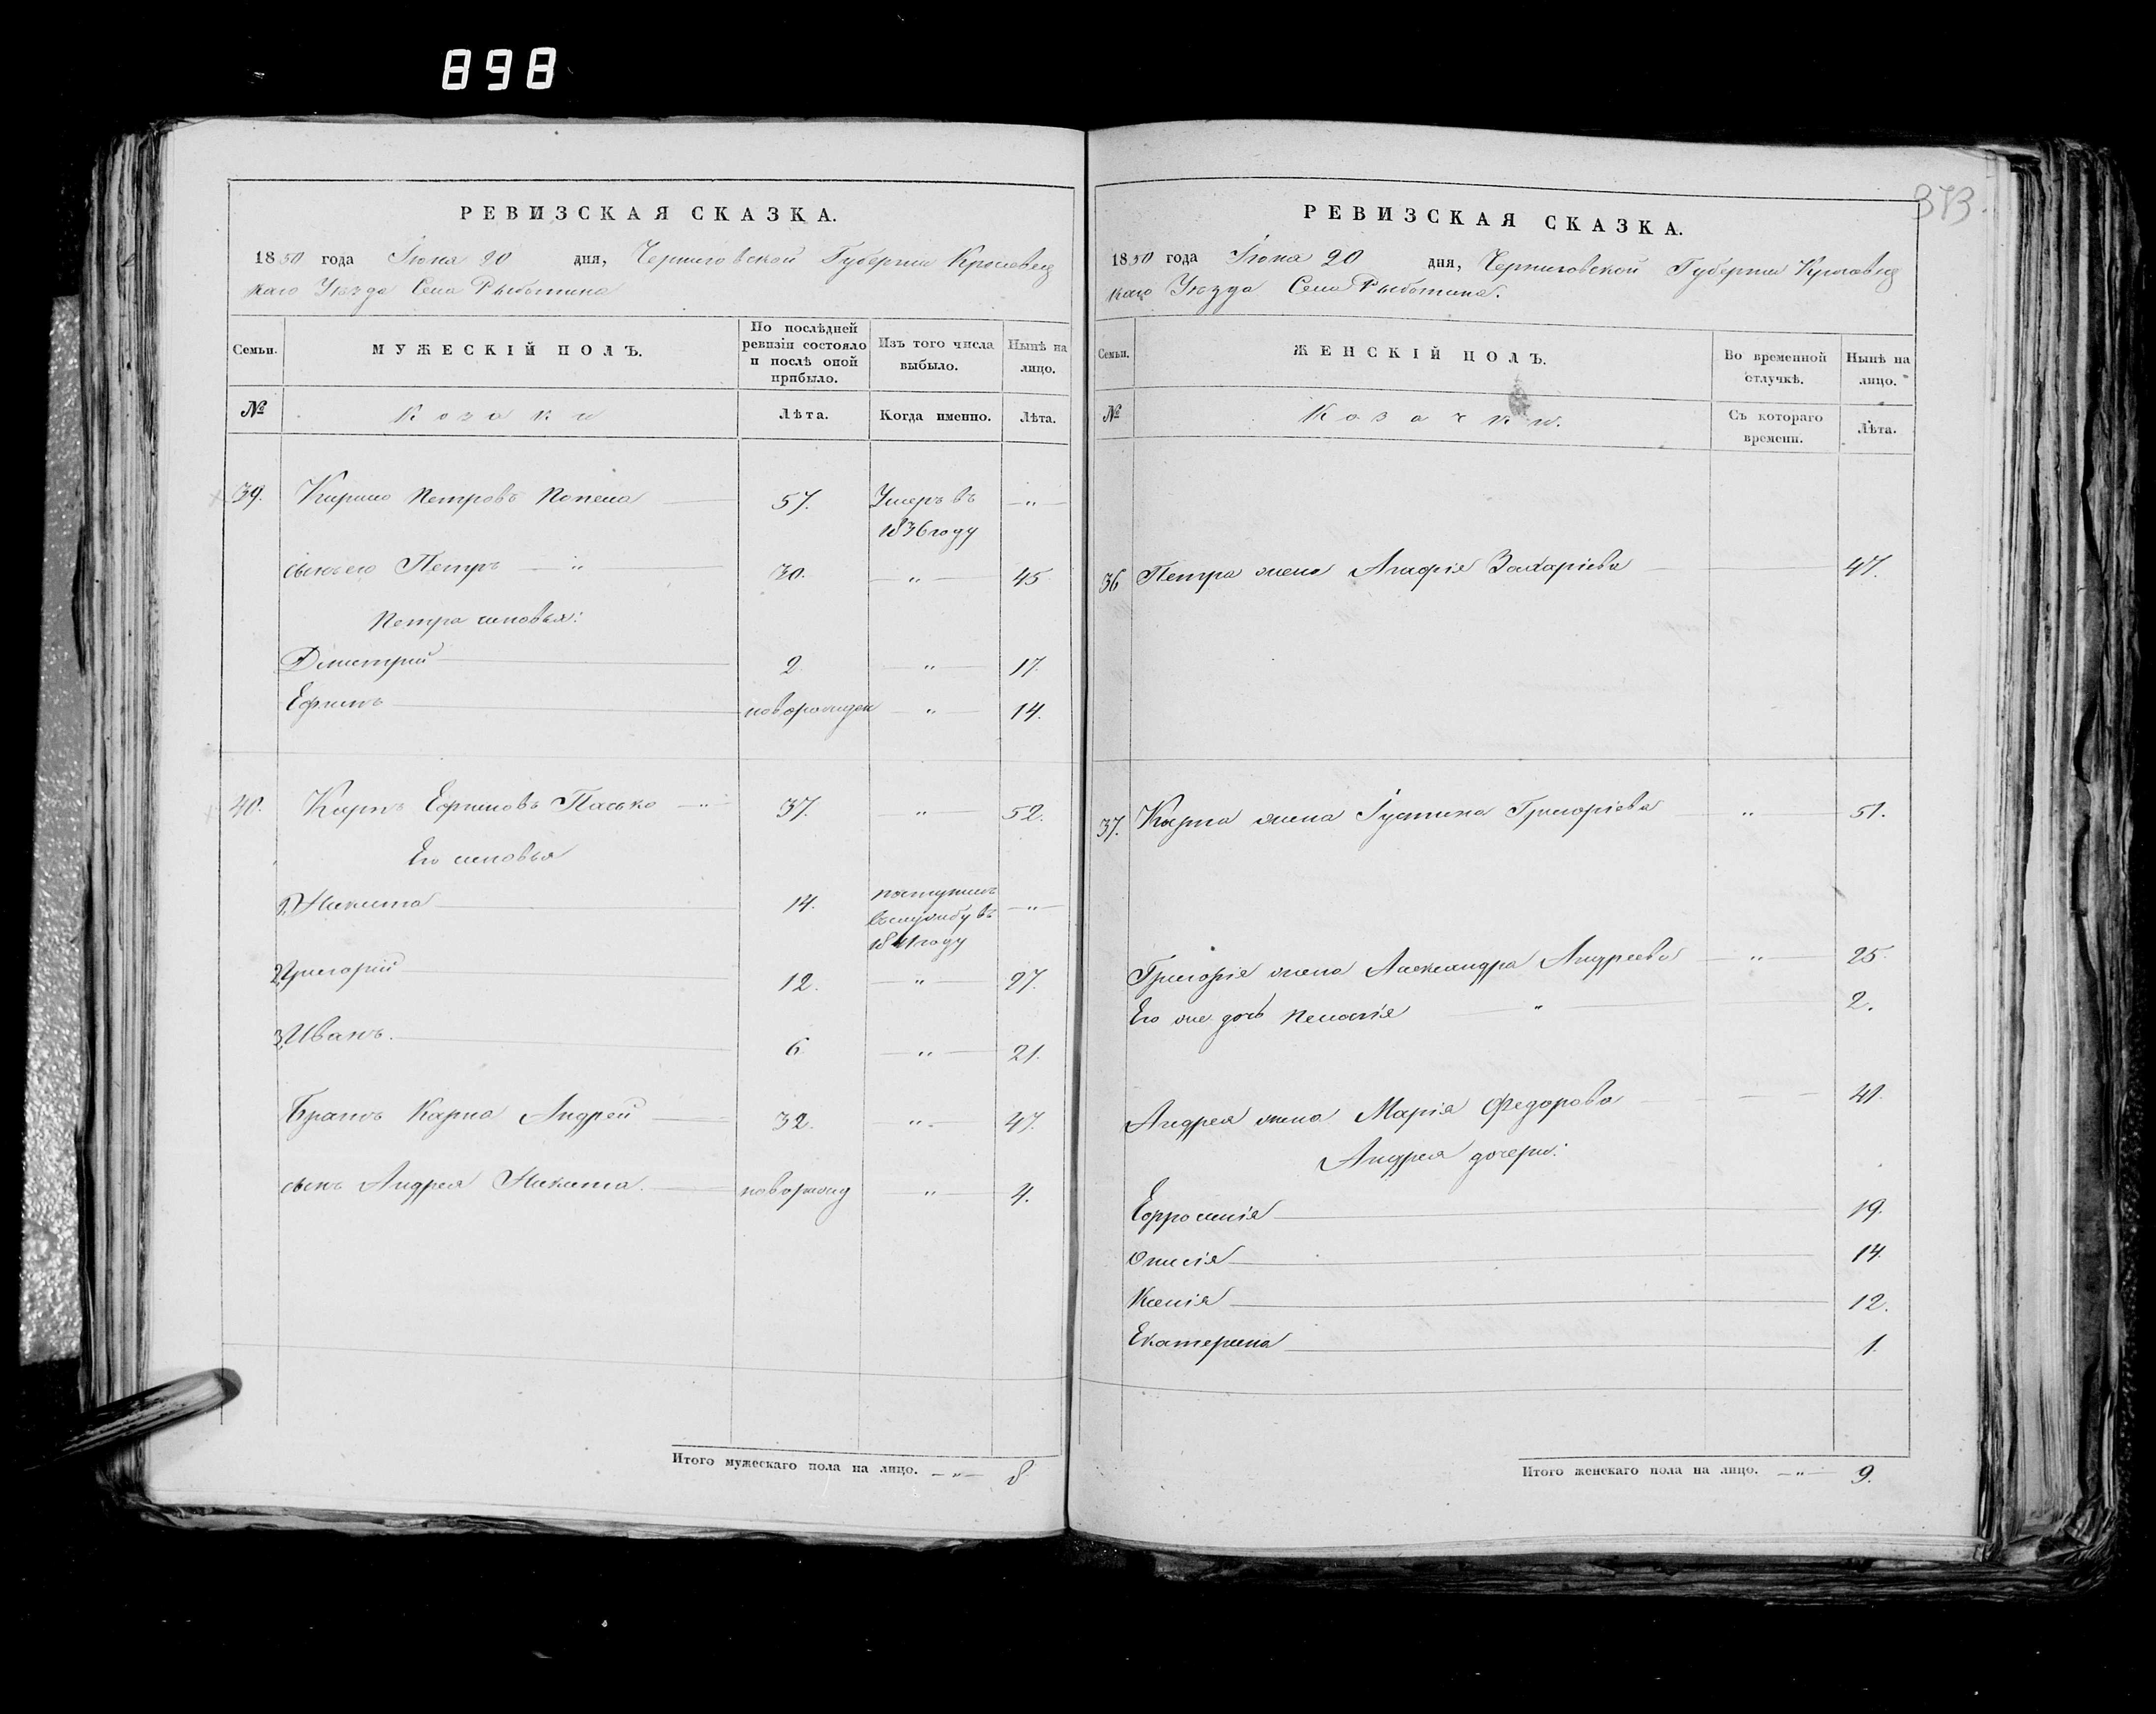 898
РЕВИЗСКАЯ СКАЗКА.
1850 года Іюня 20 дня, Черниговской Губерніи Кролевец
каго Уезда Села Рыботина
Семьи. МУЖЕСКІЙ ПОЛЪ. По послѣдней ревизіи состояло и послѣ оной прибыло. Изъ того числа выбыло. Нынѣ на лицо.
№ Козаки Лѣта. Когда именно. Лѣта.
39. Кирило Петровъ Попела 57. Умеръ въ —"—
1836 году
сынъ его Петръ —"— 30. —"— 45
Петра сыновья:
Дмитрій 2 —"— 17.
Ефимъ новорожден —"— 14.
40. Карпъ Ефимовъ Пасько —"— 37. " 52.
Его сыновья
1, Никита 14. поступилъ —"—
въ службу въ
1841 году
2, Григорій 12. —"— 27.
3, Иванъ. 6 —"— 21.
Братъ Карпа Андрей 32. —"— 47.
сынъ Андрея Никита. новорожд —"— 4.
Итого мужескаго пола на лицо. —"— 8
373.
РЕВИЗСКАЯ СКАЗКА.
1850 года Іюня 20 дня, Черниговской Губерніи Кролевец
каго Уезда Села Рыботина.
Семьи. ЖЕНСКІЙ ПОЛЪ. Во временной отлучкѣ. Нынѣ на лицо.
№ Козачки. Съ котораго времени. Лѣта.
36 Петра жена Агафія Захаріева 47.
37. Карпа жена Іустина Григоріева —"— 51.
Григорія жена Александра Андреева —"— 25.
Его же дочь Пелагія " 2.
Андрея жена Марія Федорова 41.
Андрея дочери:
Ефросинія 19.
14.
Ксенія 12.
Екатерина 1.
Итого женскаго пола на лицо. —"— 9.